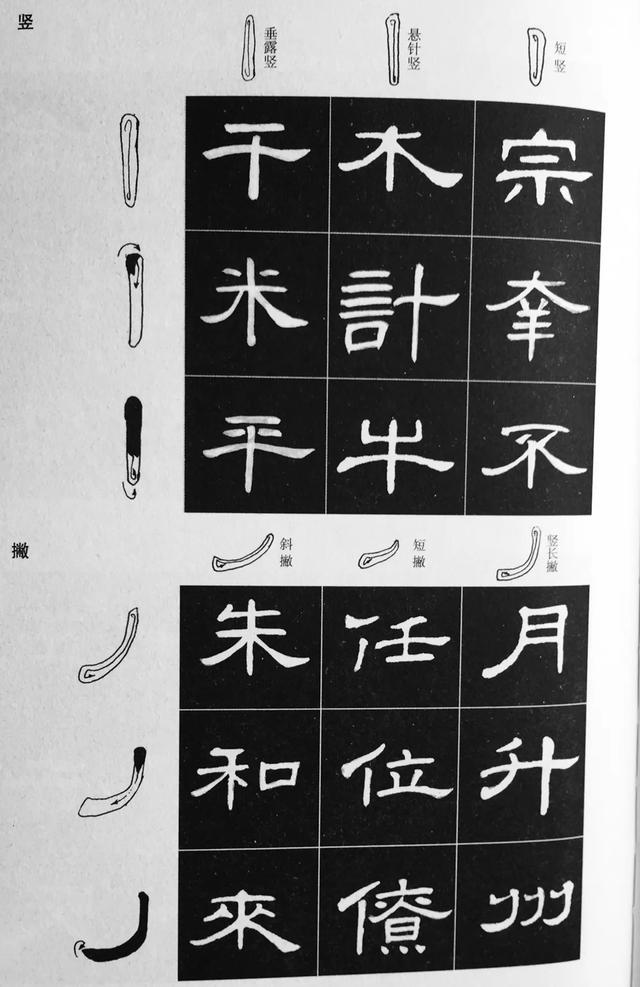 竖
垂露竖 悬针竖 短竖
干 木 宗
米 計 幸
平 牛 不
撇
斜撇 短撇 竖长撇
朱 任 月
和 位 升
來 僚 州